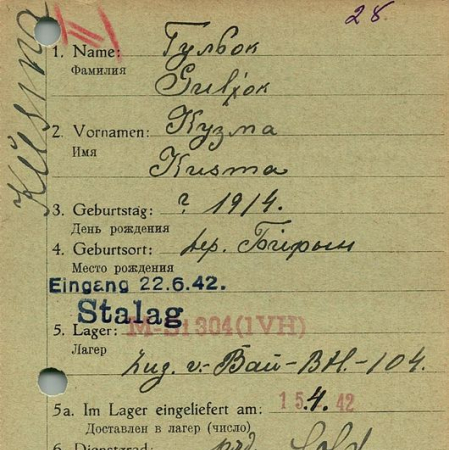 28.
II
Küsma
1. Name: Гульбок
Фамилия
Guljbok
2. Vornamen: Кузма
Имя
Kusma
3. Geburtstag: ? 1914.
День рождения
4. Geburtsort: дер.
Место рождения
Eingang 22.6.42.
Stalag
5. Lager: M-St 304(IVH)
Лагер
Zug. v. Bau-Btl.-104.
5a. Im Lager eingeliefert am: 15.4.42
Доставлен в лагер (число)
6. Dienstgrad: Sold